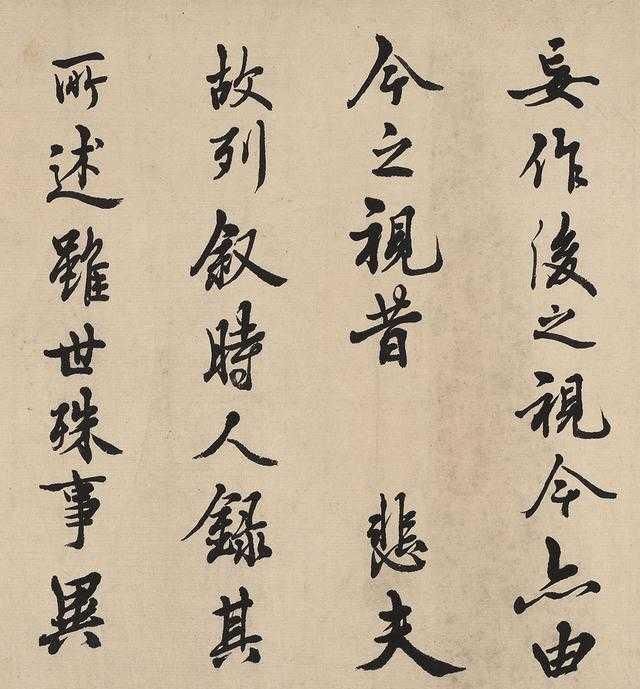 妄作後之視今亦由
今之視昔悲夫
故列叙時人錄其
所述雖世殊事異